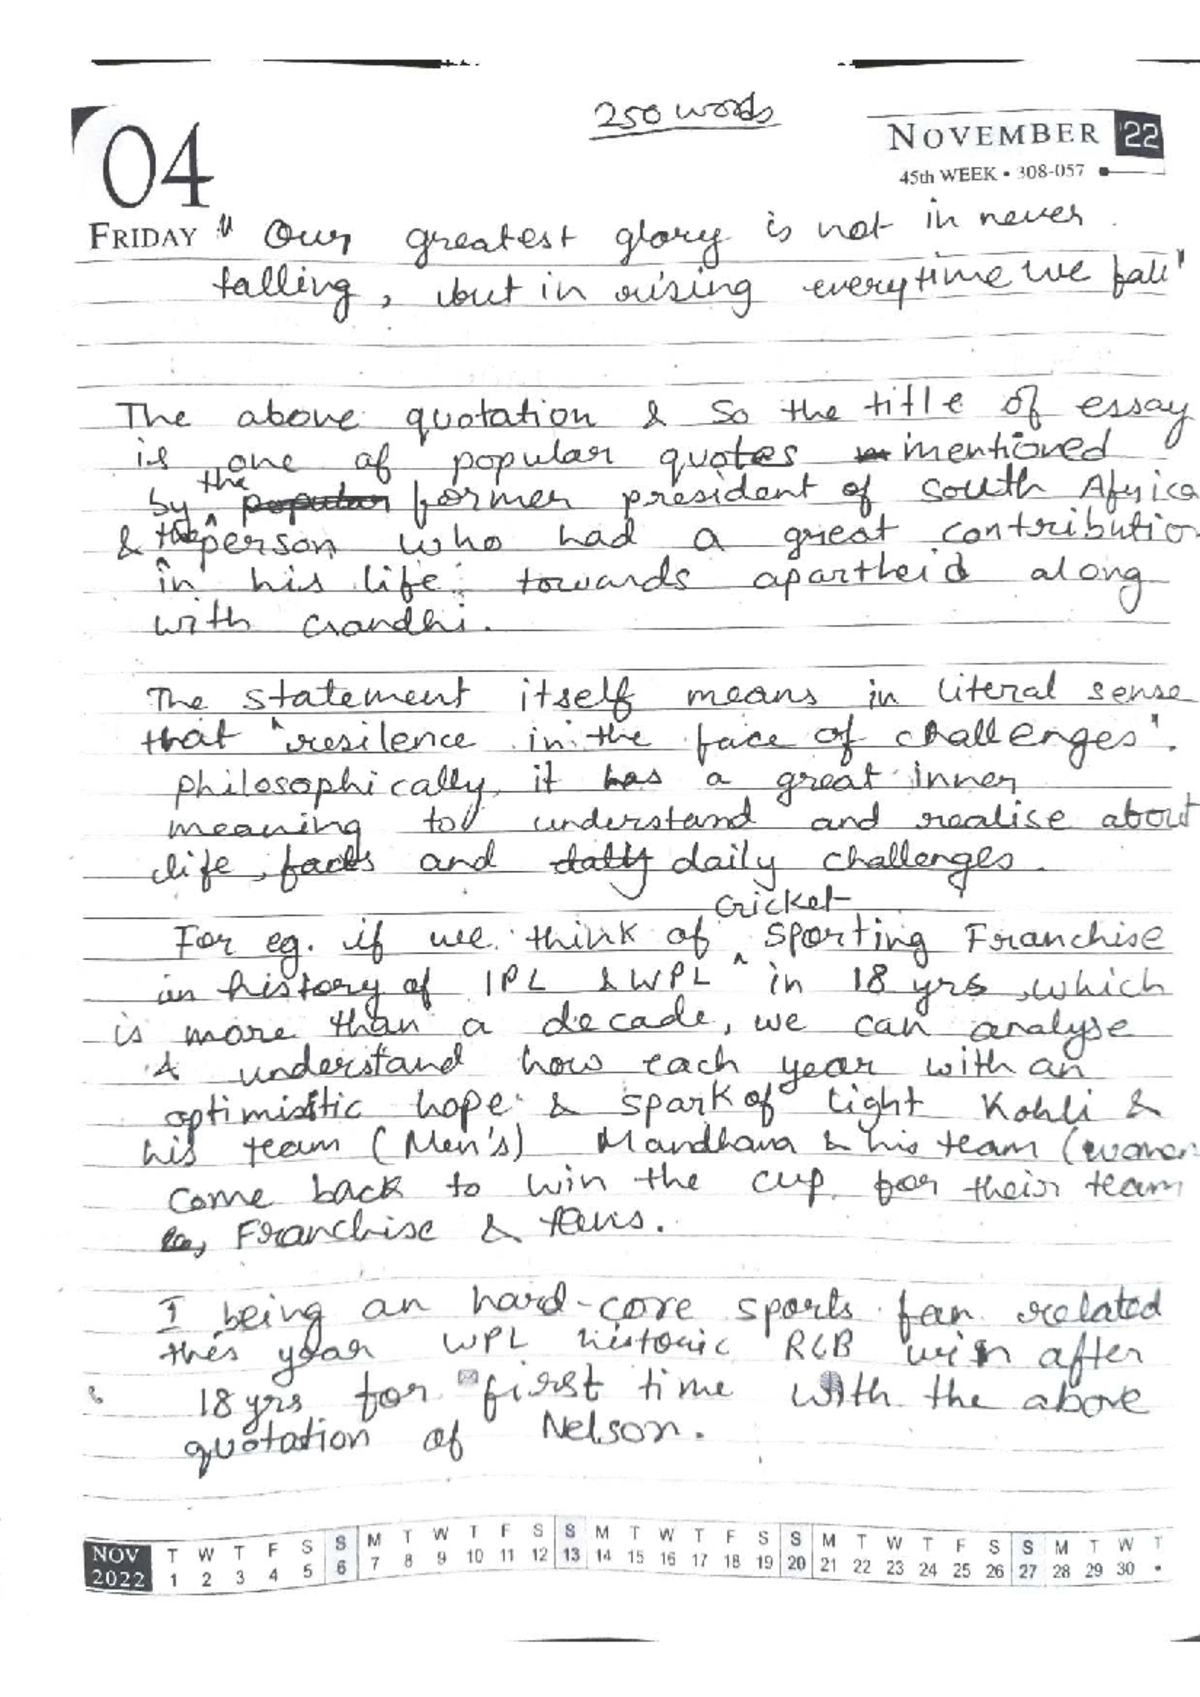 250 words
04
NOVEMBER '22
45th WEEK • 308-057
FRIDAY " Our greatest glory is not in never
falling, but in rising everytime we fall"
The above quotation & so the title of essay
is one of popular quotes mentioned
by the popular former president of South Africa
& the person who had a great contribution
in his life towards apartheid along
with Gandhi.
The statement itself means in literal sense
that "resilence in the face of challenges".
philosophically, it has a great inner
meaning to understand and realise about
life, facts and daily daily challenges.
cricket
For eg. if we think of sporting Franchise
in history of IPL & WPL in 18 yrs, which
is more than a decade, we can analyse
& understand how each year with an
optimistic hope & spark of light Kohli &
his team (Men's) Mandhana & his team (women
come back to win the cup for their team
Franchise & fans.
I being an hard-core sports fan related
this year WPL historic RCB win after
18 yrs for first time with the above
quotation of Nelson.
NOV T W T F S S M T W T F S S M T W T F S S M T W T F S S M T W T
2022 1 2 3 4 5 6 7 8 9 10 11 12 13 14 15 16 17 18 19 20 21 22 23 24 25 26 27 28 29 30 •